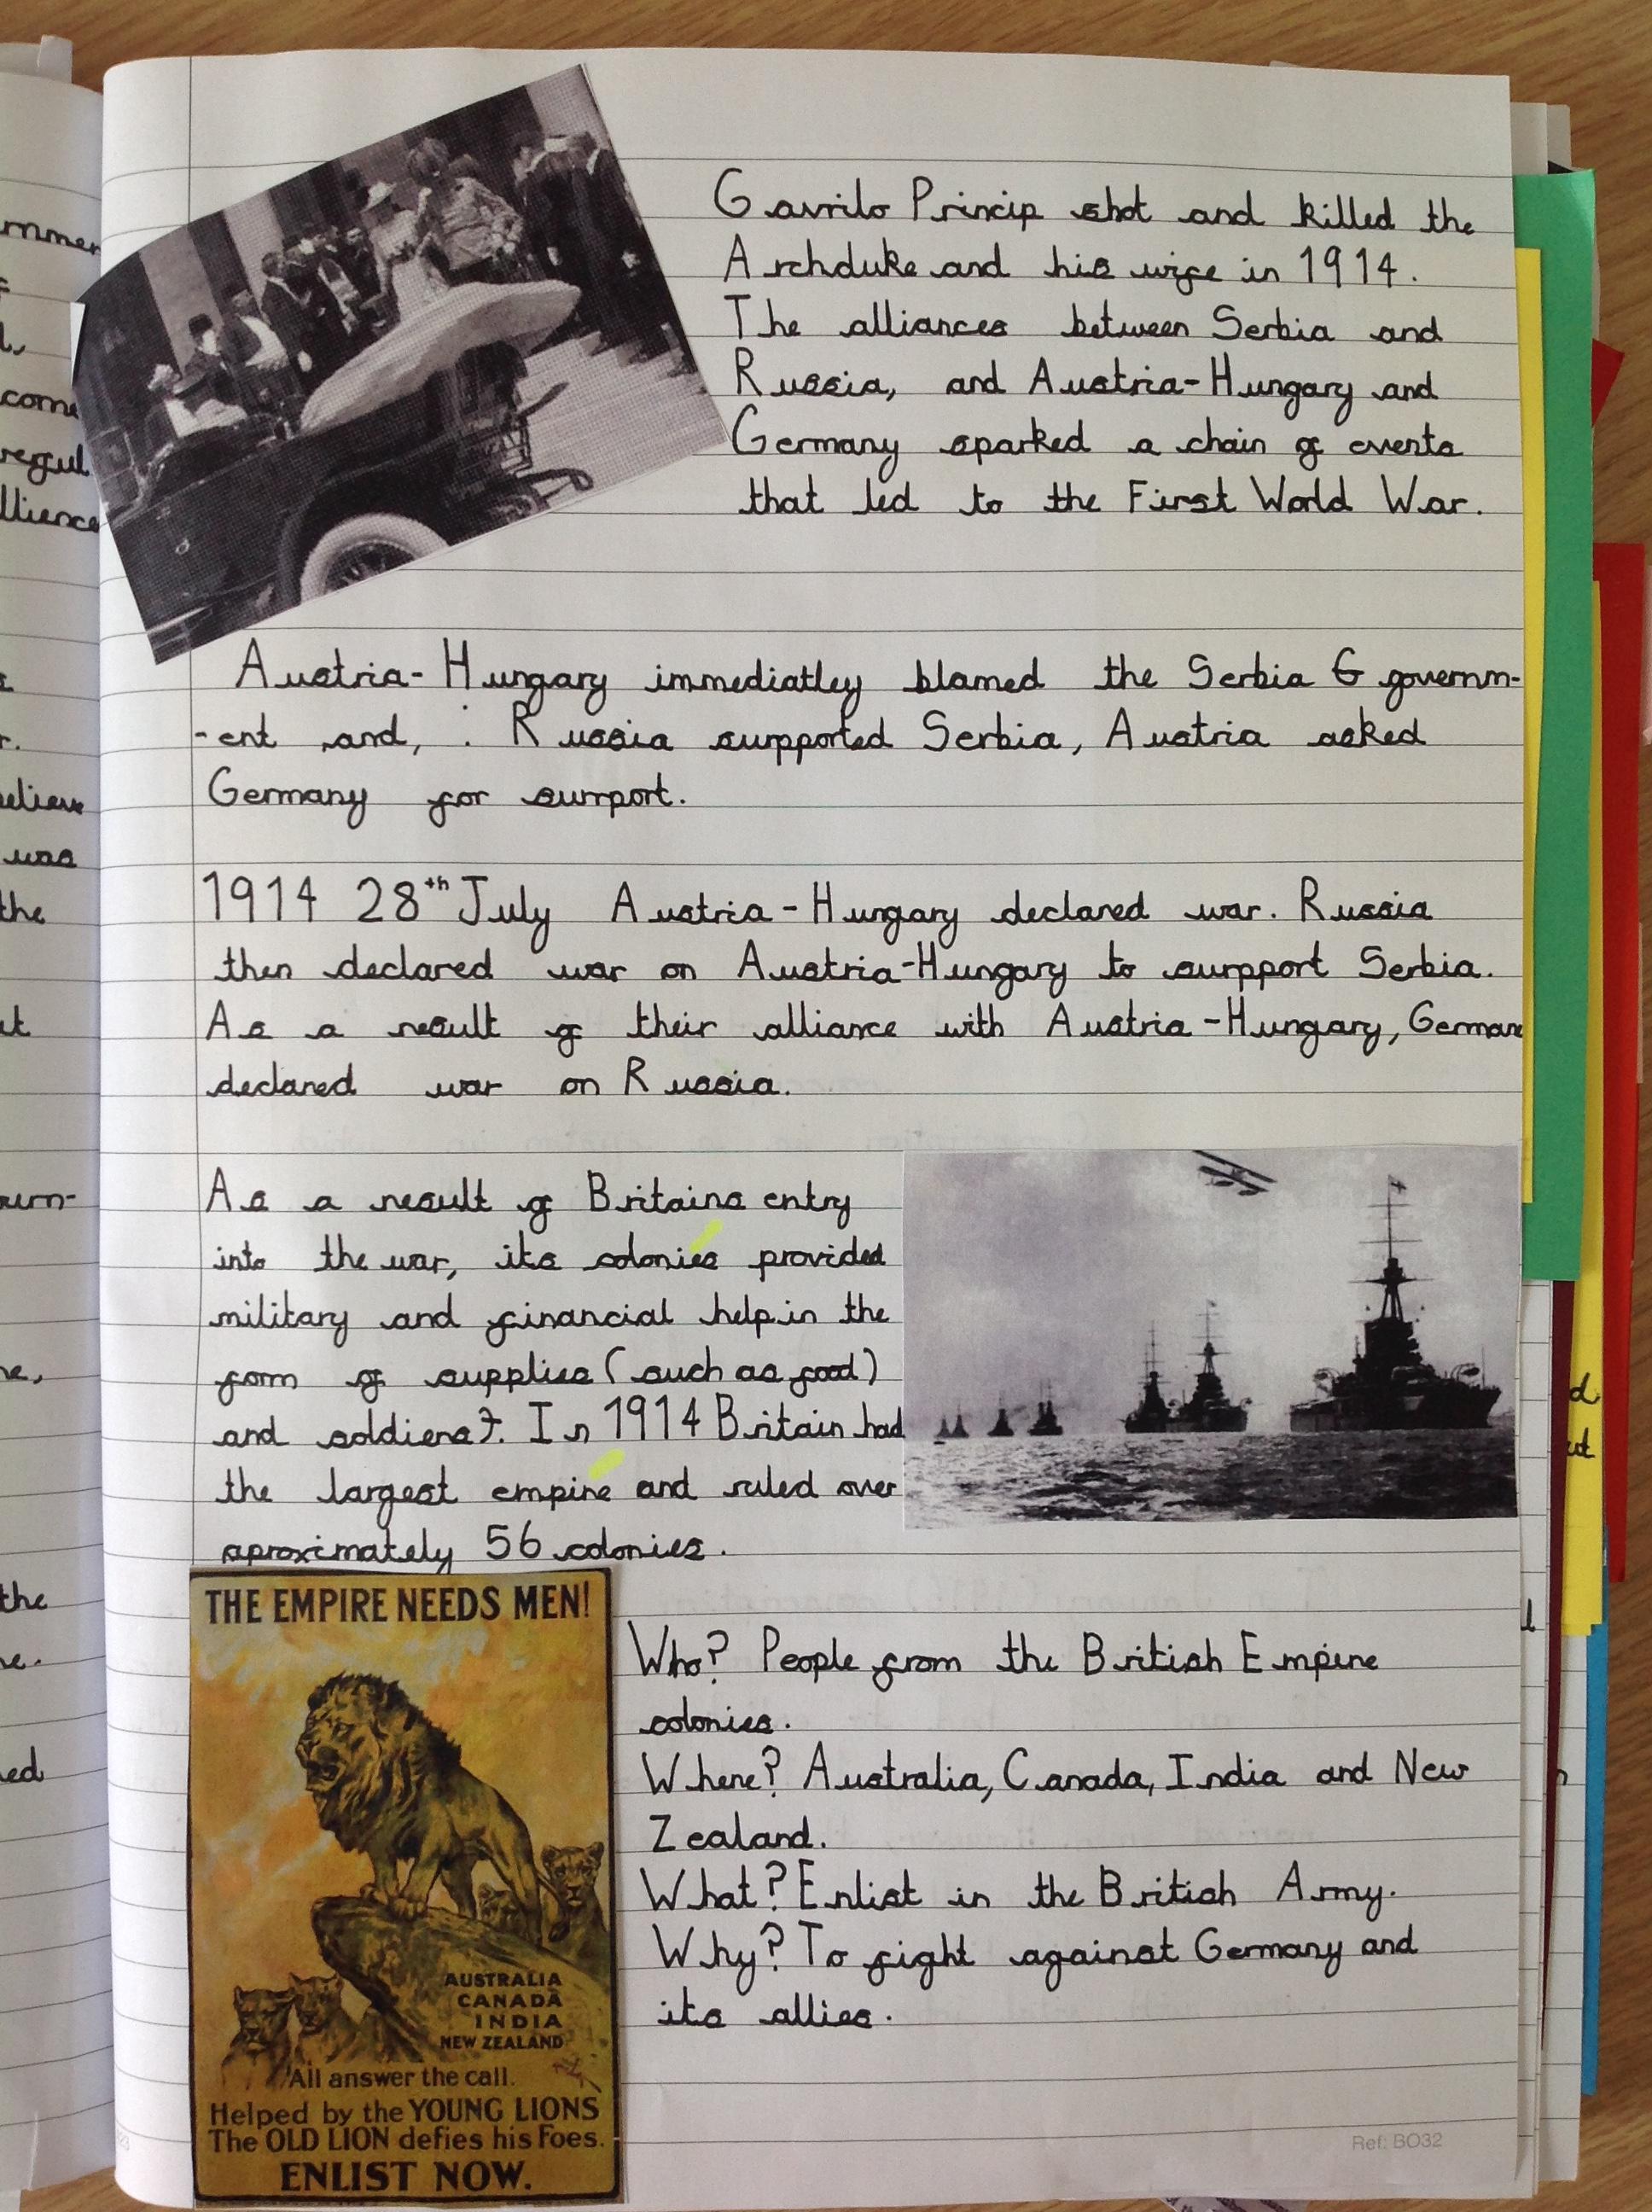 Gavrilo Princip shot and killed the
Archduke and his wife in 1914.
The alliances between Serbia and
Russia, and Austria-Hungary and
Germany sparked a chain of events
that led to the First World War.
Austria-Hungary immediatley blamed the Serbia G governm-
-ent and, ∴ Russia surpported Serbia, Austria asked
Germany for surrport.
1914 28th July Austria-Hungary declared war. Russia
then declared war on Austria-Hungary to surpport Serbia.
As a result of their alliance with Austria-Hungary, German
declared war on Russia.
As a result of Britains entry
into the war, its colonies provided
military and financial help in the
form of supplies (such as food)
and soldiers). In 1914 Britain had
the largest empire and ruled over
aproximately 56 colonies.
THE EMPIRE NEEDS MEN!
AUSTRALIA
CANADA
INDIA
NEW ZEALAND
All answer the call.
Helped by the YOUNG LIONS
The OLD LION defies his Foes.
ENLIST NOW.
Who? People from the British Empire
colonies.
Where? Australia, Canada, India and New
Zealand.
What? Enlist in the British Army.
Why? To fight against Germany and
its allies.
Ref: BO32